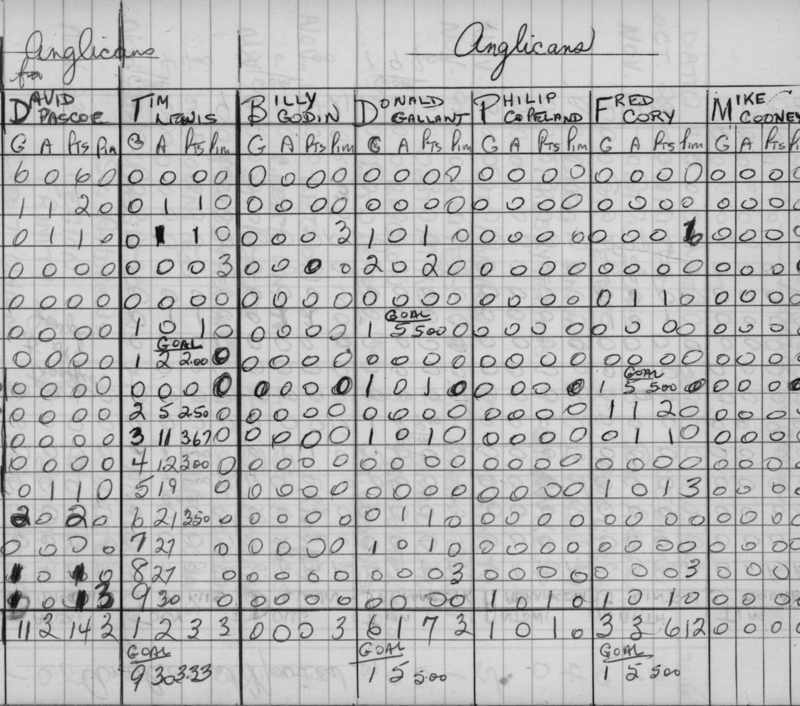 Anglicans Anglicans
for
DAVID PASCOE TIM LEWIS BILLY GODIN DONALD GALLANT PHILIP COPELAND FRED CORY MIKE COONEY
G A PTS PIM G A PTS PIM G A PTS PIM G A PTS PIM G A PTS PIM G A PTS PIM G A PTS
6 0 6 0 0 0 0 0 0 0 0 0 0 0 0 0 0 0 0 0 0 0 0 0 0 0 0 0
1 1 2 0 0 1 1 0 0 0 0 0 0 0 0 0 0 0 0 0 0 0 0 0 0 0 0 0
0 1 1 0 0 1 1 0 0 0 0 3 1 0 1 0 0 0 0 0 0 0 0 6 0 0 0 0
0 0 0 0 0 0 0 3 0 0 0 0 2 0 2 0 0 0 0 0 0 0 0 0 0 0 0 0
0 0 0 0 0 0 0 0 0 0 0 0 0 0 0 0 0 0 0 0 0 1 1 0 0 0 0 0
GOAL
0 0 0 0 1 0 1 0 0 0 0 0 1 5 500 0 0 0 0 0 0 0 0 0 0 0 0 0
GOAL
0 0 0 0 1 2 200 0 0 0 0 0 0 0 0 0 0 0 0 0 0 0 0 0 0 0 0 0
GOAL
0 0 0 0 0 0 0 0 0 0 0 0 1 0 1 0 0 0 0 0 1 5 500 0 0 0 0 0
0 0 0 0 2 5 250 0 0 0 0 0 0 0 0 0 0 0 0 0 1 1 2 0 0 0 0 0
0 0 0 0 3 11 367 0 0 0 0 0 1 0 1 0 0 0 0 0 0 1 1 0 0 0 0 0
0 0 0 0 4 12 300 0 0 0 0 0 0 0 0 0 0 0 0 0 0 0 0 0 0 0 0 0
0 1 1 0 5 19 0 0 0 0 0 0 0 0 0 0 0 0 0 1 0 1 3 0 0 0 0
2 0 2 0 6 21 350 0 0 0 0 0 0 1 1 0 0 0 0 0 0 0 0 0 0 0 0 0
0 0 0 0 7 27 0 0 0 0 0 1 0 1 0 0 0 0 0 0 0 0 0 0 0 0 0
1 0 1 0 8 27 0 0 0 0 0 0 0 0 3 0 0 0 0 0 0 0 3 0 0 0
1 0 1 3 9 30 0 0 0 0 0 0 0 0 0 1 0 1 0 1 0 1 0 0 0 0 0
11 3 14 3 1 2 3 3 0 0 0 3 6 1 7 3 1 0 1 0 3 3 6 12 0 0 0 0
GOAL GOAL GOAL
9 30 333 1 5 500 1 5 500